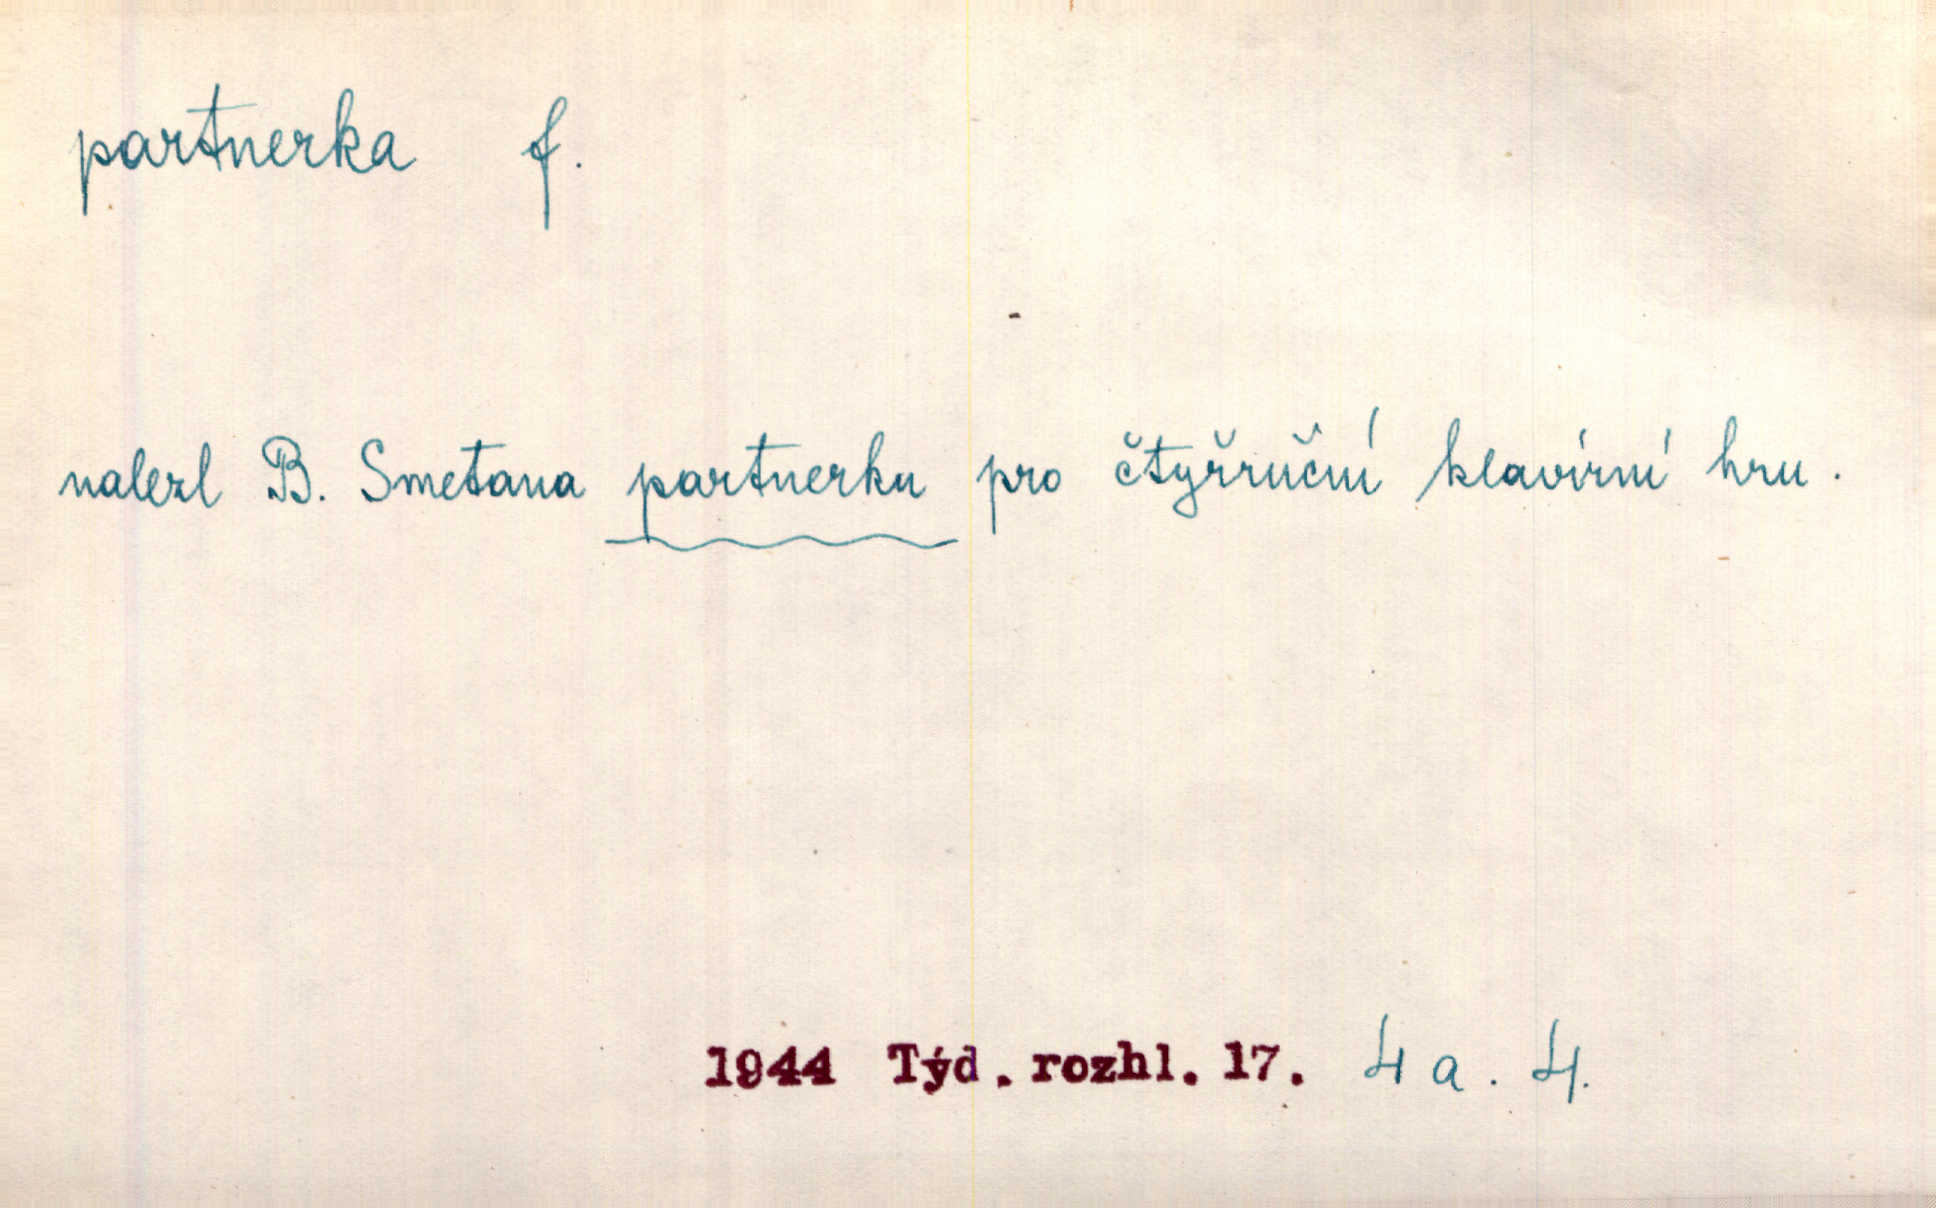 partnerka f.
nalezl B. Smetana partnerku pro čtyřruční klavírní hru.
1944 Týd. rozhl. 17. 4 a. 4.